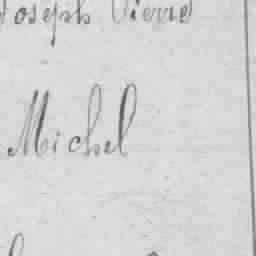 Joseph Pierre
Michel